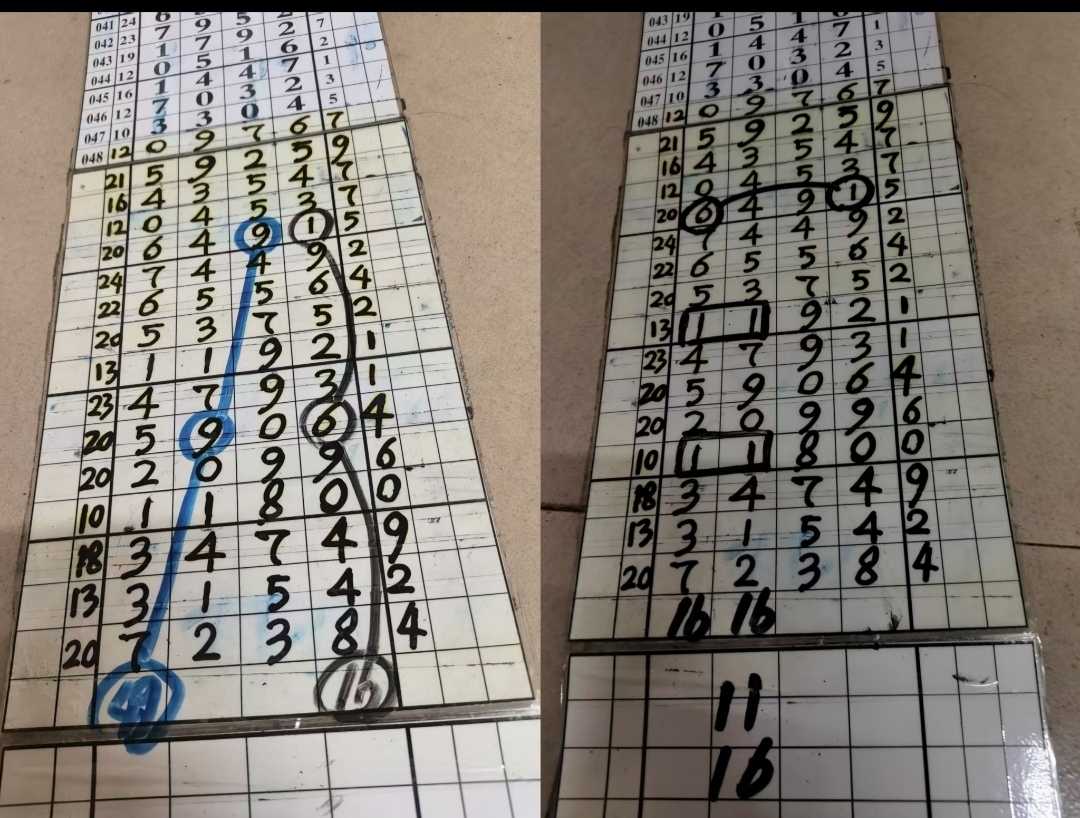 041 24 6 9 5 2 7
042 23 7 7 9 2 2
043 19 1 5 1 6 1
044 12 0 4 4 7 3
045 16 1 0 3 2 5
046 12 7 3 0 4
047 10 3 9 7 6 7
048 12 0 9 2 5 9
21 5 3 5 4 7
16 4 4 5 3 7
12 0 4 9 1 5
20 6 4 4 9 2
24 7 4 5 6 4
22 6 5 7 5 2
20 5 3 9 2 1
13 1 1 9 3 1
23 4 7 0 6 4
20 5 9 9 9 6
20 2 0 8 0 0
10 1 1 7 4 9
18 3 4 5 4 2
13 3 1 3 8 4
20 7 2
49 16
043 19
044 12 0 5 1 6 1
045 16 1 4 4 7 3
046 12 7 0 3 2 5
047 10 3 3 0 4
048 12 0 9 7 6 7
21 5 9 2 5 9
16 4 3 5 4 7
12 0 4 5 3 7
20 6 4 9 1 5
24 7 4 4 9 2
22 6 5 5 6 4
20 5 3 7 5 2
13 1 1 9 2 1
23 4 7 9 3 1
20 5 9 0 6 4
20 2 0 9 9 6
10 1 1 8 0 0
18 3 4 7 4 9
13 3 1 5 4 2
20 7 2 3 8 4
16 16
11
16